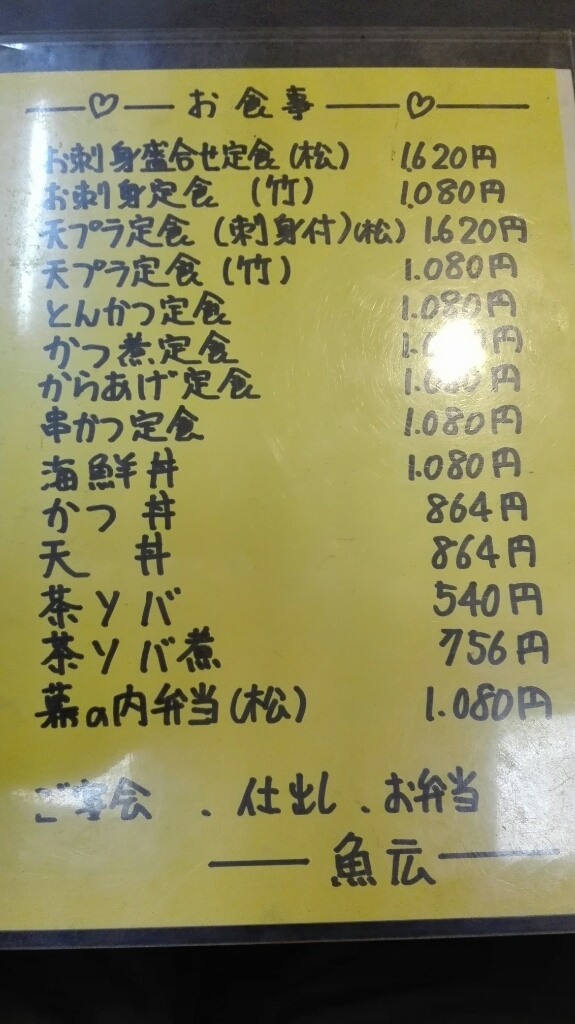 お食事
お刺身盛合せ定食(松) 1.620円
お刺身定食 (竹) 1.080円
天プラ定食 (刺身付)(松) 1.620円
天プラ定食 (竹) 1.080円
とんかつ定食 1.080円
かつ煮定食
からあげ定食 1.080円
串かつ定食 1.080円
海鮮丼 1.080円
かつ丼 864円
天丼 864円
茶ソバ 540円
茶ソバ煮 756円
幕の内弁当(松) 1.080円
ご宴会、仕出し、お弁当
魚広